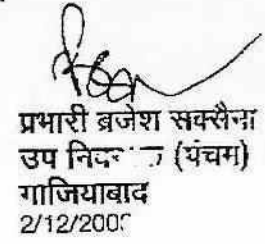 प्रभारी ब्रजेश सक्सैना
उप (पंचम)
गाजियाबाद
2/12/200